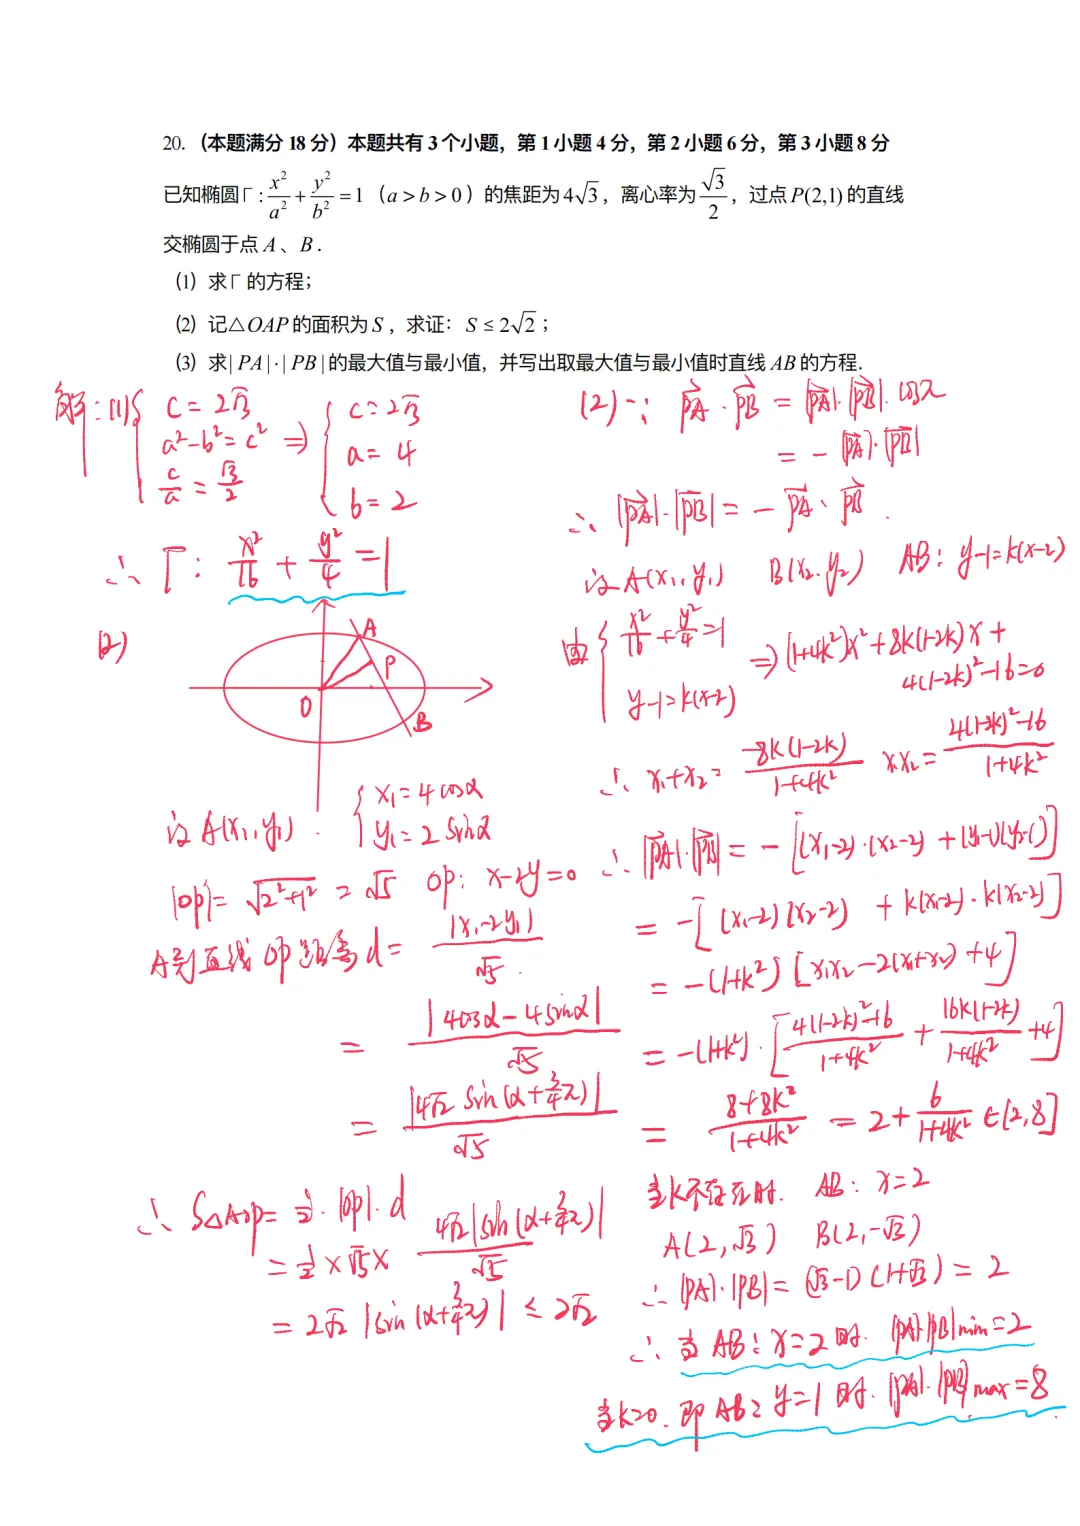 20.（本题满分 18 分）本题共有 3 个小题，第 1 小题 4 分，第 2 小题 6 分，第 3 小题 8 分
已知椭圆 Γ: x²/a² + y²/b² = 1（a > b > 0）的焦距为 4√3，离心率为 √3/2，过点 P(2,1) 的直线
交椭圆于点 A、B.
(1) 求 Γ 的方程；
(2) 记△OAP 的面积为 S，求证：S ≤ 2√2；
(3) 求|PA|·|PB|的最大值与最小值，并写出取最大值与最小值时直线 AB 的方程.
解：(1) { c = 2√3
a² - b² = c²
c/a = √3/2
⇒ { c = 2√3
a = 4
b = 2
∴ Γ: x²/16 + y²/4 = 1
(2)
A
P
O
B
设 A(x₁, y₁). { x₁ = 4cosα
y₁ = 2sinα
|OP| = √(2²+1²) = √5 OP: x-2y=0
A到直线 OP 距离 d = |x₁-2y₁|/√5.
= |4cosα - 4sinα|/√5
= |4√2 sin(α+3/4π)|/√5
∴ S△AOP = 1/2·|OP|·d
= 1/2 × √5 × 4√2|sin(α+3/4π)|/√5
= 2√2 |sin(α+3/4π)| ≤ 2√2
(2) ∵ PA⃗·PB⃗ = |PA⃗|·|PB⃗|·cosπ
= -|PA⃗|·|PB⃗|
∴ |PA⃗|·|PB⃗| = -PA⃗·PB⃗.
设 A(x₁, y₁) B(x₂, y₂) AB: y-1=k(x-2)
由 { x²/16 + y²/4 = 1
y-1=k(x-2)
⇒ (1+4k²)x² + 8k(1-2k)x +
4(1-2k)²-16=0
∴ x₁+x₂ = -8k(1-2k)/(1+4k²) x₁x₂ = (4(1-2k)²-16)/(1+4k²)
∴ |PA⃗|·|PB⃗| = -[(x₁-2)·(x₂-2) + (y₁-1)(y₂-1)]
= -[(x₁-2)(x₂-2) + k(x₁-2)·k(x₂-2)]
= -(1+k²)[x₁x₂-2(x₁+x₂)+4]
= -(1+k²)·[(4(1-2k)²-16)/(1+4k²) + 16k(1-2k)/(1+4k²) + 4]
= (8+8k²)/(1+4k²) = 2 + 6/(1+4k²) ∈ (2,8]
当k不存在时. AB: x=2
A(2,√3) B(2,-√3)
∴ |PA|·|PB| = (√3-1)(1+√3) = 2
∴ 当 AB: x=2 时. |PA|·|PB|min=2
当k=0. 即 AB: y=1 时. |PA|·|PB|max=8